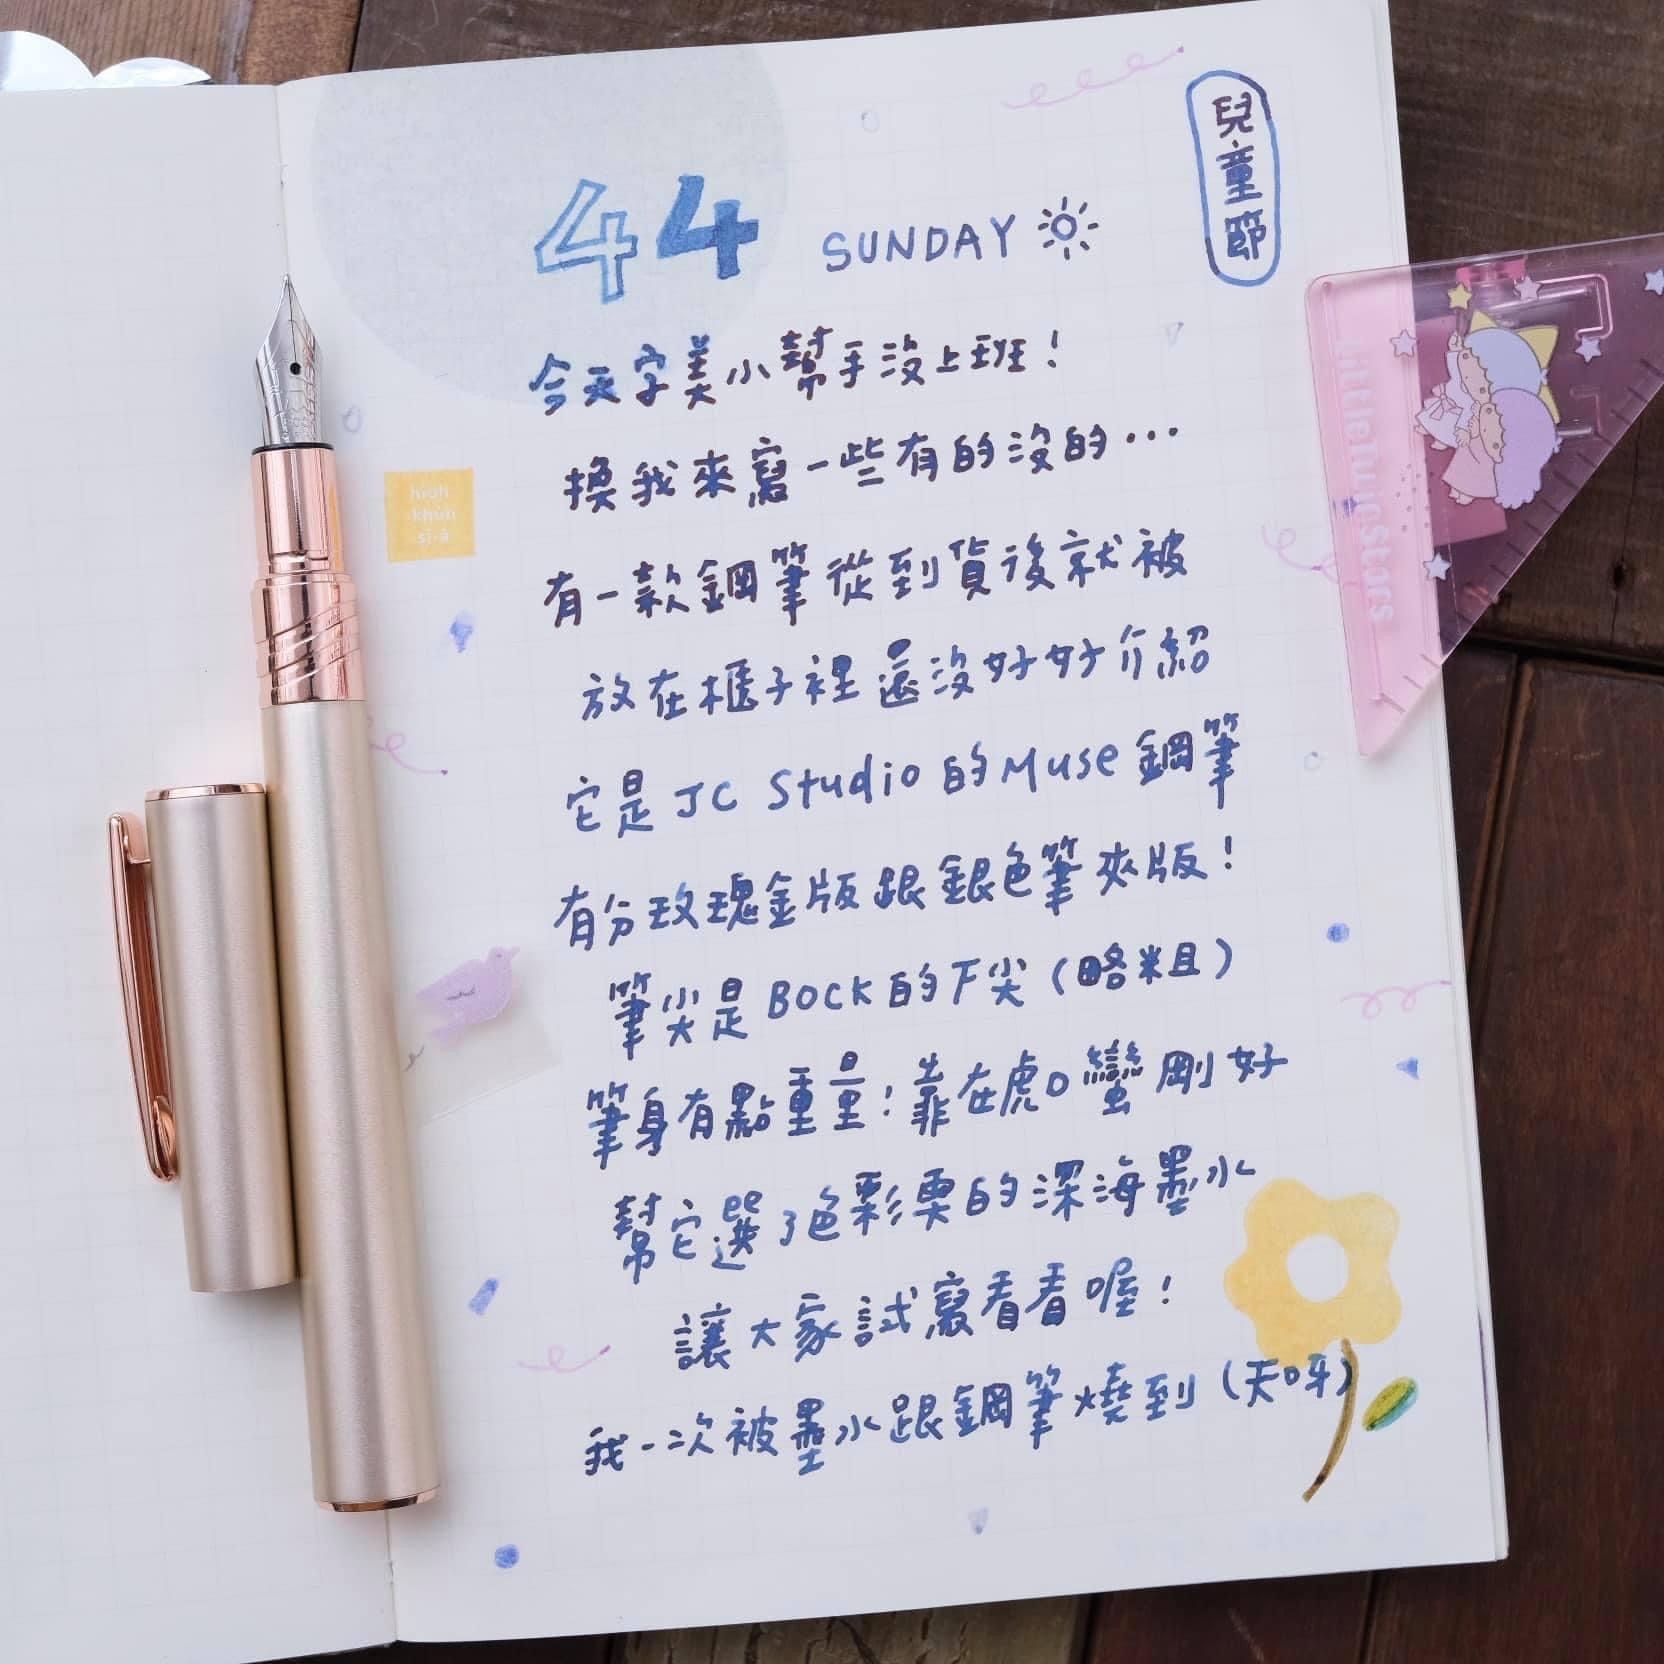 兒童節
44 SUNDAY
今天字美小幫手沒上班！
換我來寫一些有的沒的⋯
有一款鋼筆從到貨後就被
放在櫃子裡還沒好好介紹
它是JC Studio的Muse鋼筆
有分玫瑰金版跟銀色筆夾版！
筆尖是BOCK的F尖（略粗）
筆身有點重量！靠在虎口蠻剛好
幫它選了色彩栗的深海墨水
讓大家試寫看看喔！
我一次被墨水跟鋼筆燒到（天呀）
hioh
-khùn
-sî-á
LittleTwinStars